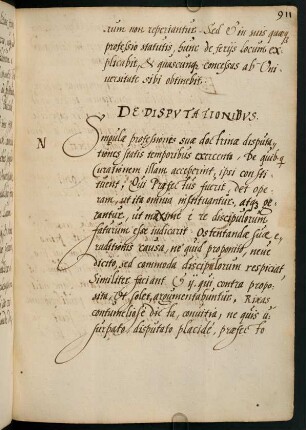 911
rum non reperiantur. Sed & in suis quæq
professio statutis, hunc de ferijs locum ex,
plicabit, & quascunq concessas ab Uni,
uersitate sibi obtinebit.
DE DISPUTATIONIBVS.
N
Singulæ professiones suæ doctrinæ disputa,
tiones statis temporibus exercento. De quibq
curationem illam acceperint, ipsi con sti
tuent; Qui Præfectus fuerit, det ope
ram, ut ita omnia instituantur, atq ge
rantur, ut maxime è re discipulorum
futurum esse iudicarit. Ostentandæ suæ e,
ruditionis causa, ne quid proponito, neue
dicito, sed commoda discipulorum respiciat
Similiter faciant & ij, qui contra propo
sita, ut solet, argumentabuntur, Rixas
contumeliose dicta, conuitia, ne quis u
surpato, disputato placide, præfecto